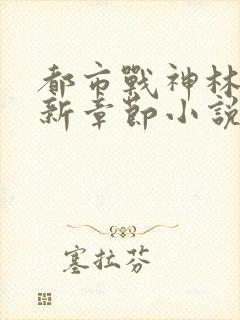 都市戰神林
新章節小說
塞拉芬